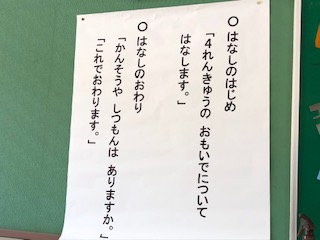 ○はなしのはじめ
「４れんきゅうの おもいでについて
はなします。」
○はなしのおわり
「かんそうや しつもんは ありますか。」
「これでおわります。」